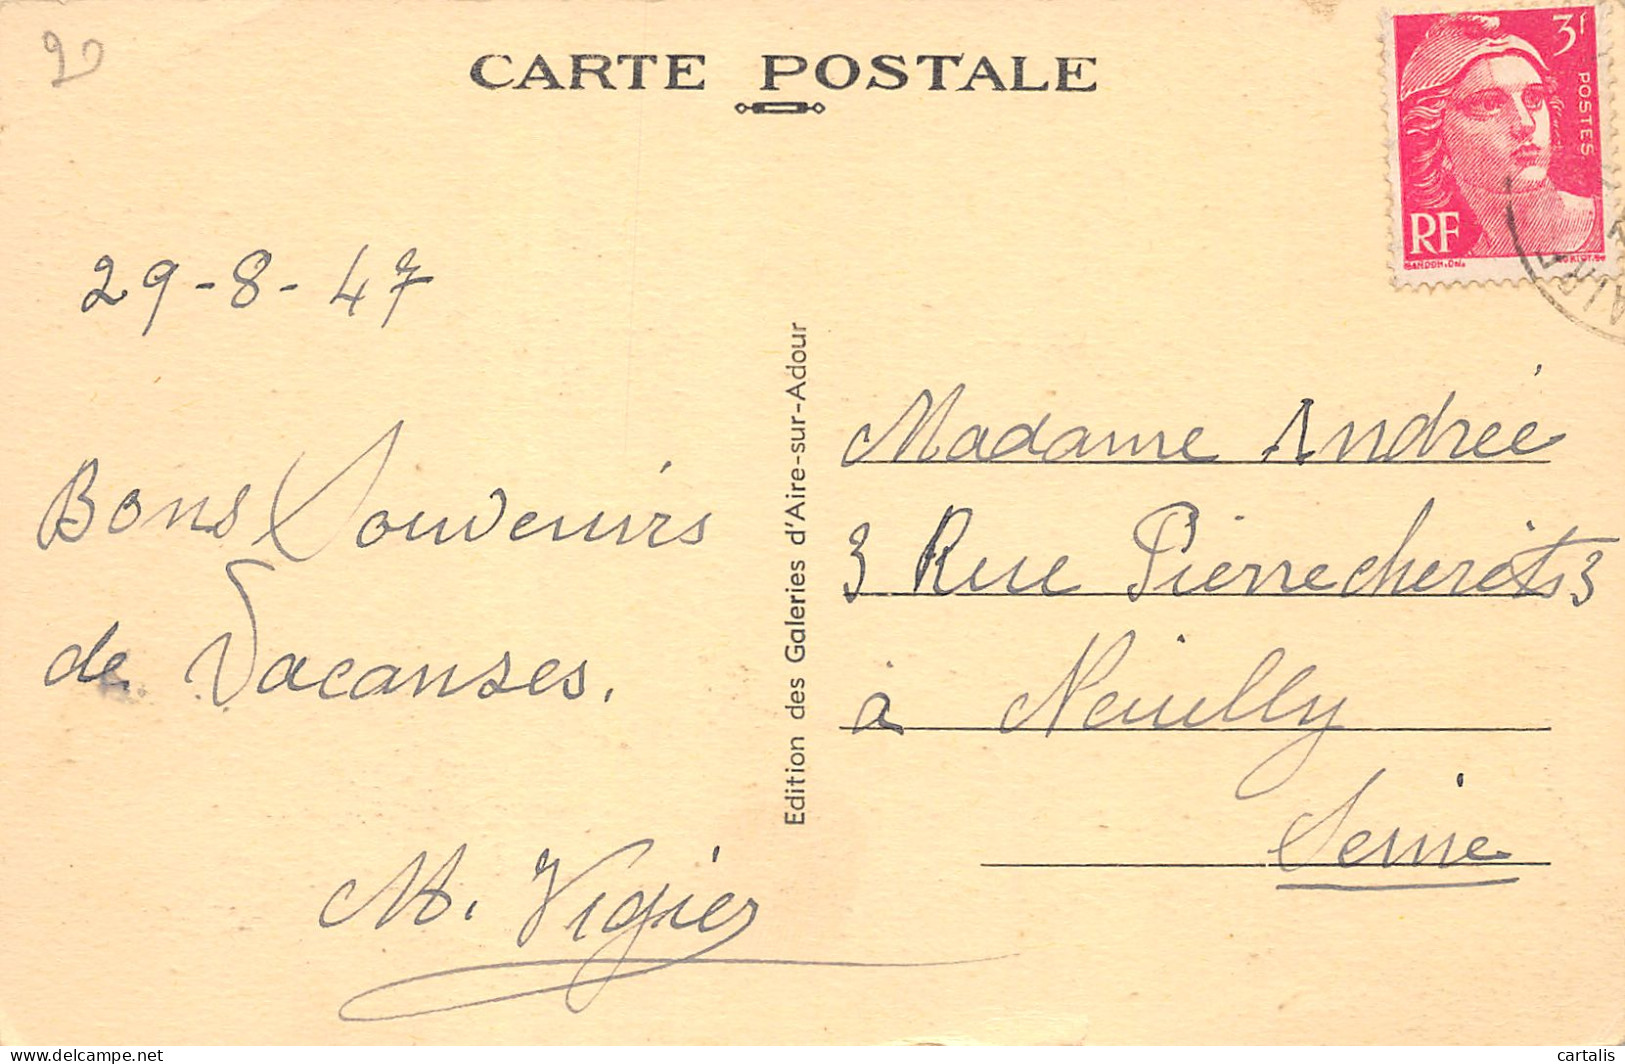 20
CARTE POSTALE
3f
POSTES
RF
29-8-47
Bons Souvenirs
de Vacanses.
M. Vigier
Edition des Galeries d'Aire-sur-Adour
Madame Andrée
3 Rue Pierrecherets 3
à Neuilly
Seine
delcampe.net
cartalis